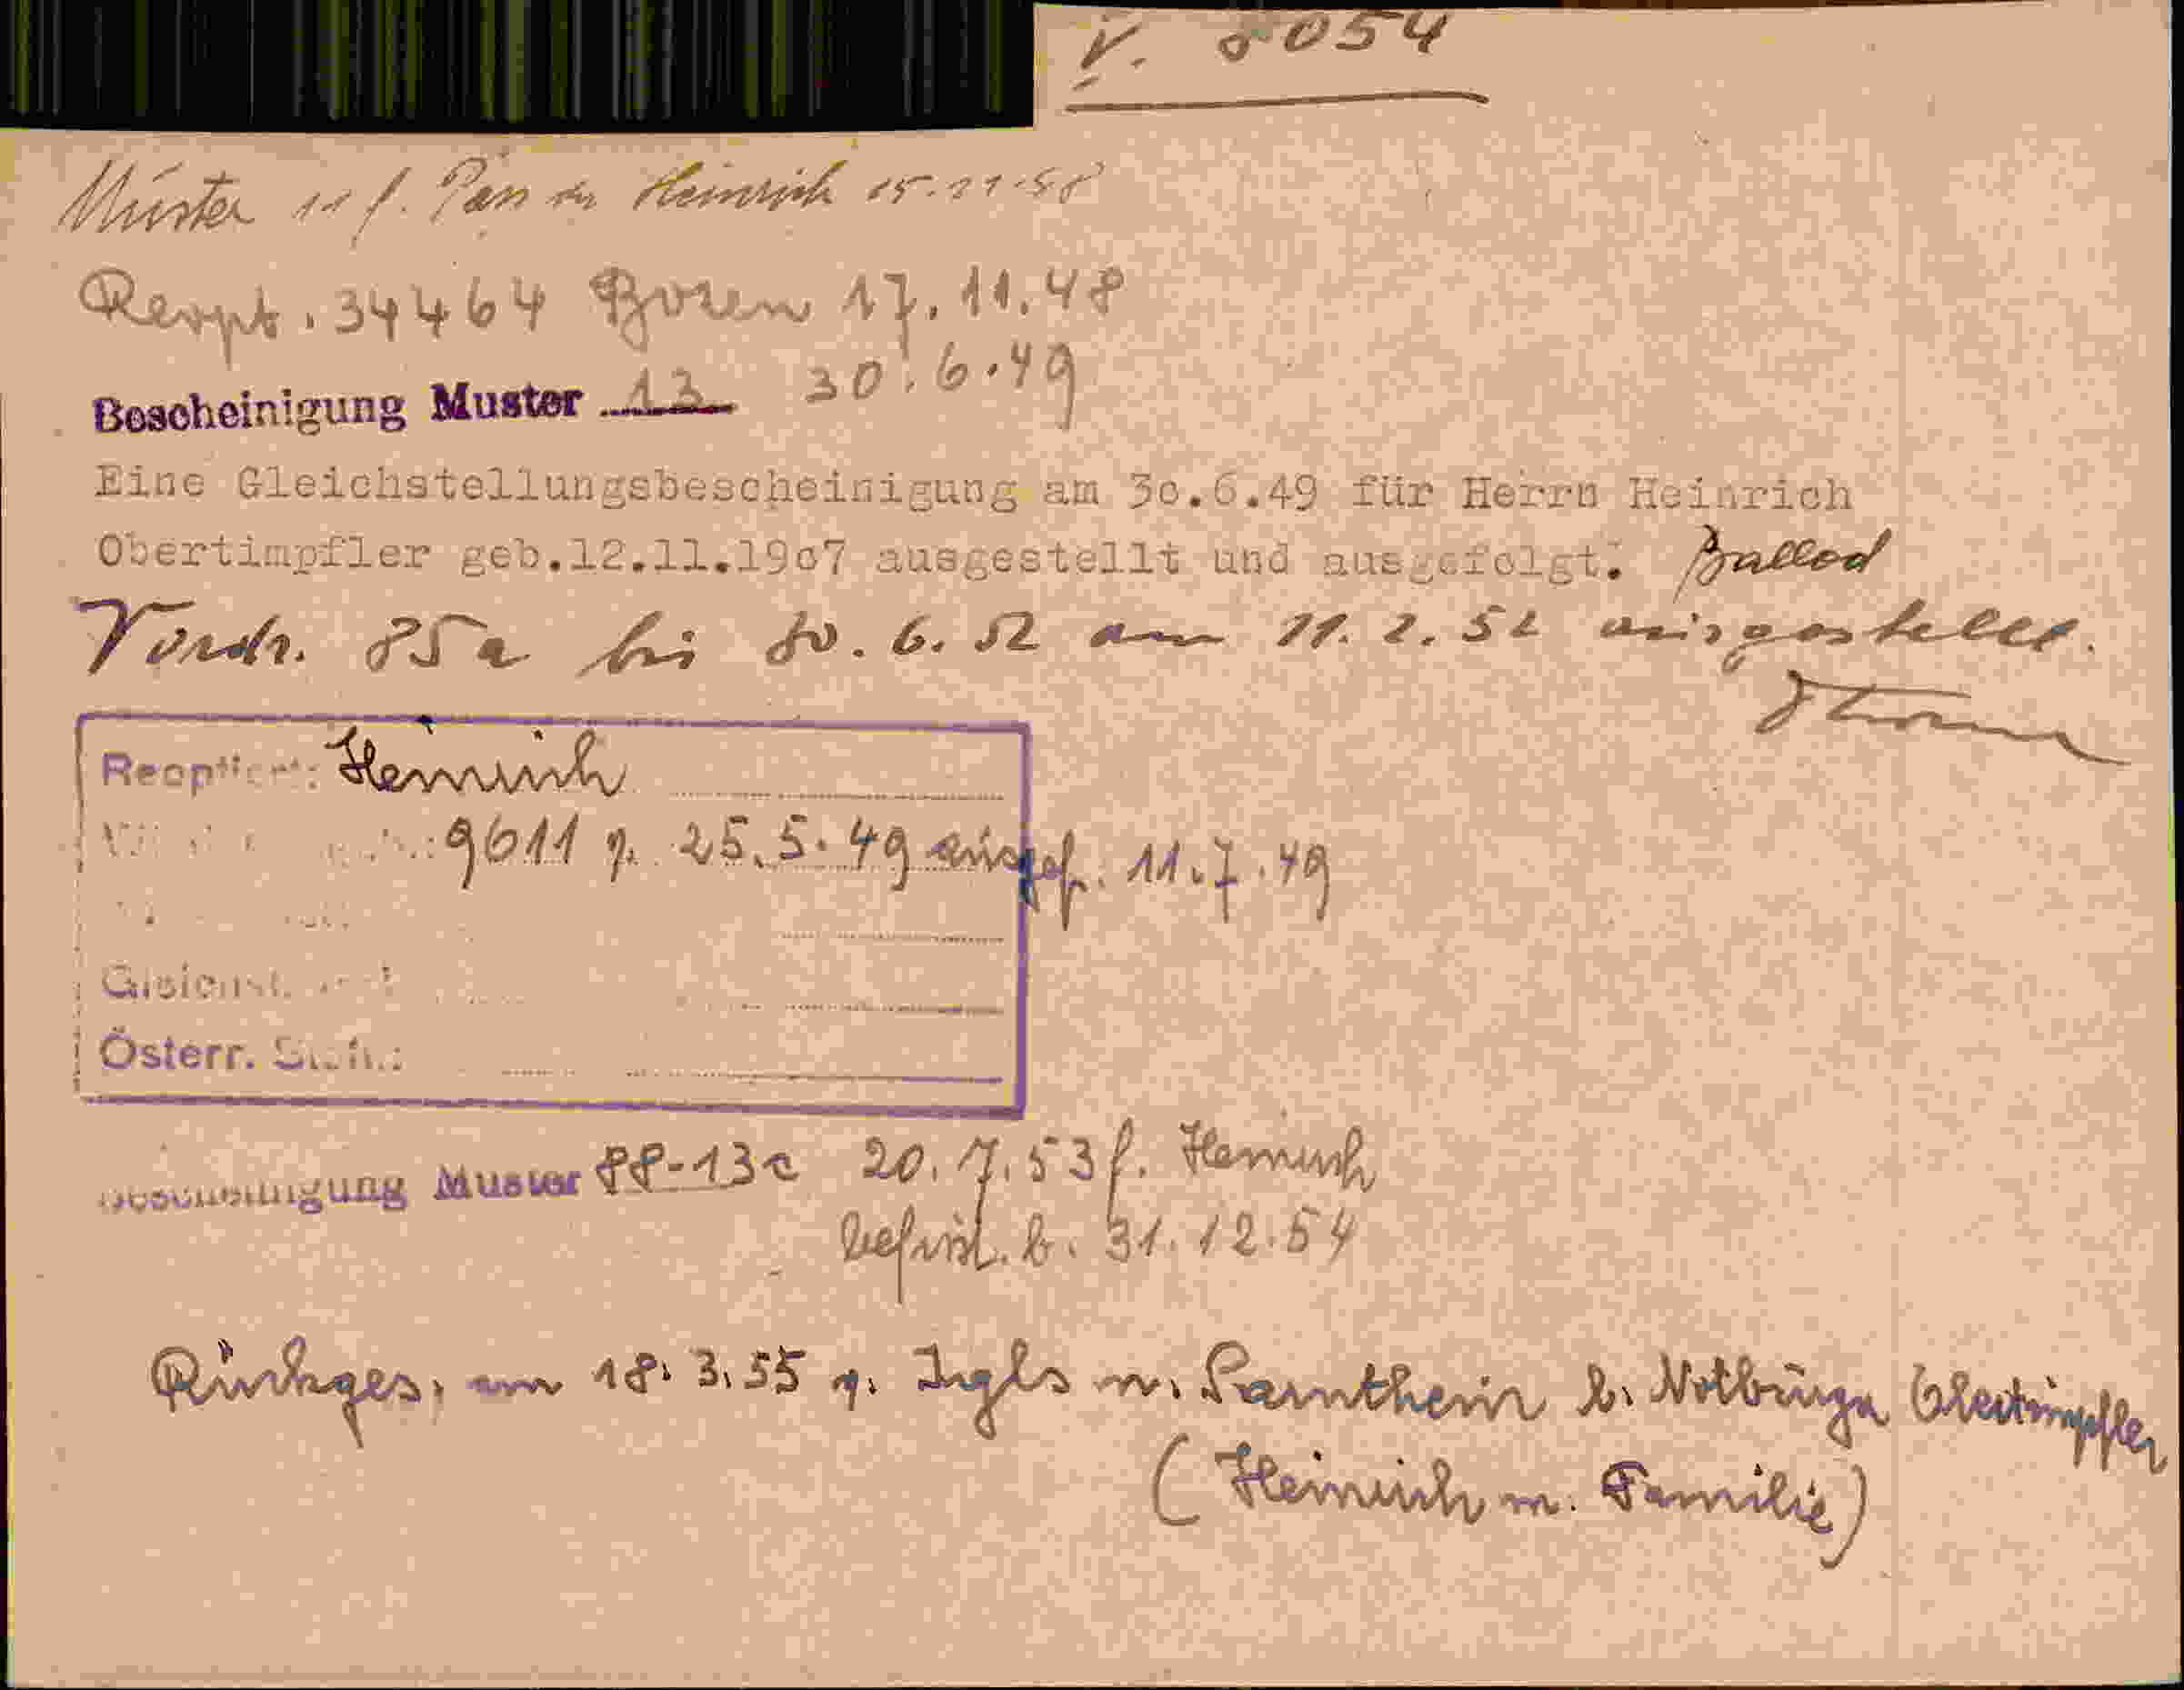 V. 8054
Muster 11 f. Pass an Heinrich 15.11.58
Reopt. 34464 Bozen 17.11.48
Bescheinigung Muster 13 30.6.49
Eine Gleichstellungsbescheinigung am 30.6.49 für Herrn Heinrich
Obertimpfler geb.12.11.1907 ausgestellt und ausgefolgt. Ballod
Vordr. 85a bis 30.6.52 am 11.2.52 ausgestellt.
Reoptiert: Heinrich
9611 v. 25.5.49 ausgef. 11.7.49
Gleichst.
Österr. Stb.:
Bescheinigung Muster 88-13c 20.7.53 f. Heinrich
befrist. b. 31.12.54
Rückges. am 18.3.55 v. Igls n. Sarnthein b. Notburga Obertimpfler
(Heinrich m. Familie)